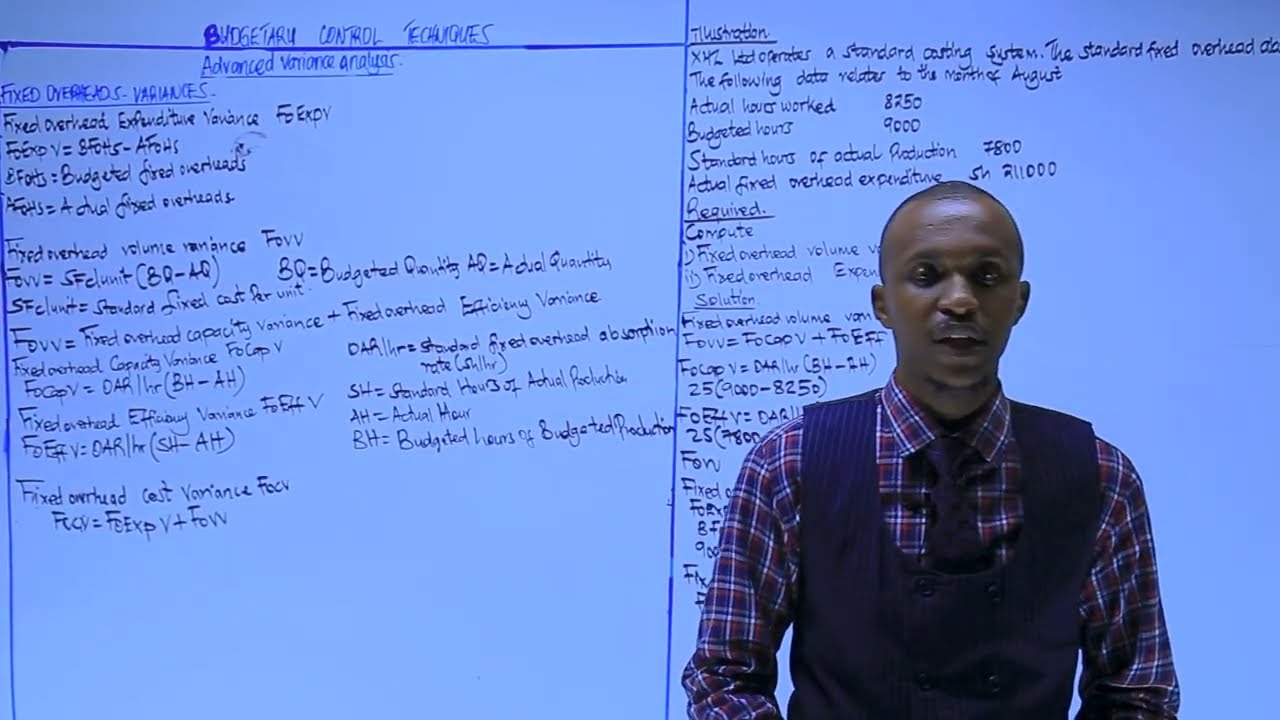 BUDGETARY CONTROL TECHNIQUES
Advanced variance analysis.
FIXED OVERHEADS - VARIANCES -
Fixed overhead Expenditure Variance FOExpV
FOExpV = BFOHs - AFOHs
BFOHs = Budgeted fixed overheads
AFOHs = Actual fixed overheads
Fixed overhead volume variance FOVV
FOVV = SFc|unit (BQ - AQ) BQ = Budgeted Quantity AQ = Actual Quantity
SFc|unit = Standard fixed cost per unit
FOVV = Fixed overhead capacity variance + Fixed overhead Efficiency Variance
Fixed overhead Capacity Variance FOCapV
FOCapV = OAR|hr (BH - AH)
Fixed overhead Efficiency Variance FOEffV
FOEffV = OAR|hr (SH - AH)
OAR|hr = Standard fixed overhead absorption
rate (sh|hr)
SH = Standard Hours of Actual Production
AH = Actual Hour
BH = Budgeted hours of Budgeted Production
Fixed overhead cost Variance FOCV
FOCV = FOExpV + FOVV
Illustration.
XYZ Ltd operates a standard costing system. The standard fixed overhead
The following data relates to the month of August
Actual hours worked 8250
Budgeted hours 9000
Standard hours of actual Production 7800
Actual fixed overhead expenditure sh 211000
Required.
Compute
i) Fixed overhead volume
ii) Fixed overhead
Solution.
Fixed overhead volume
FOVV = FOCapV + FOEff
FOCapV = OAR|hr (BH - AH)
25 (9000 - 8250)
FOEffV = OAR|
25 (7800